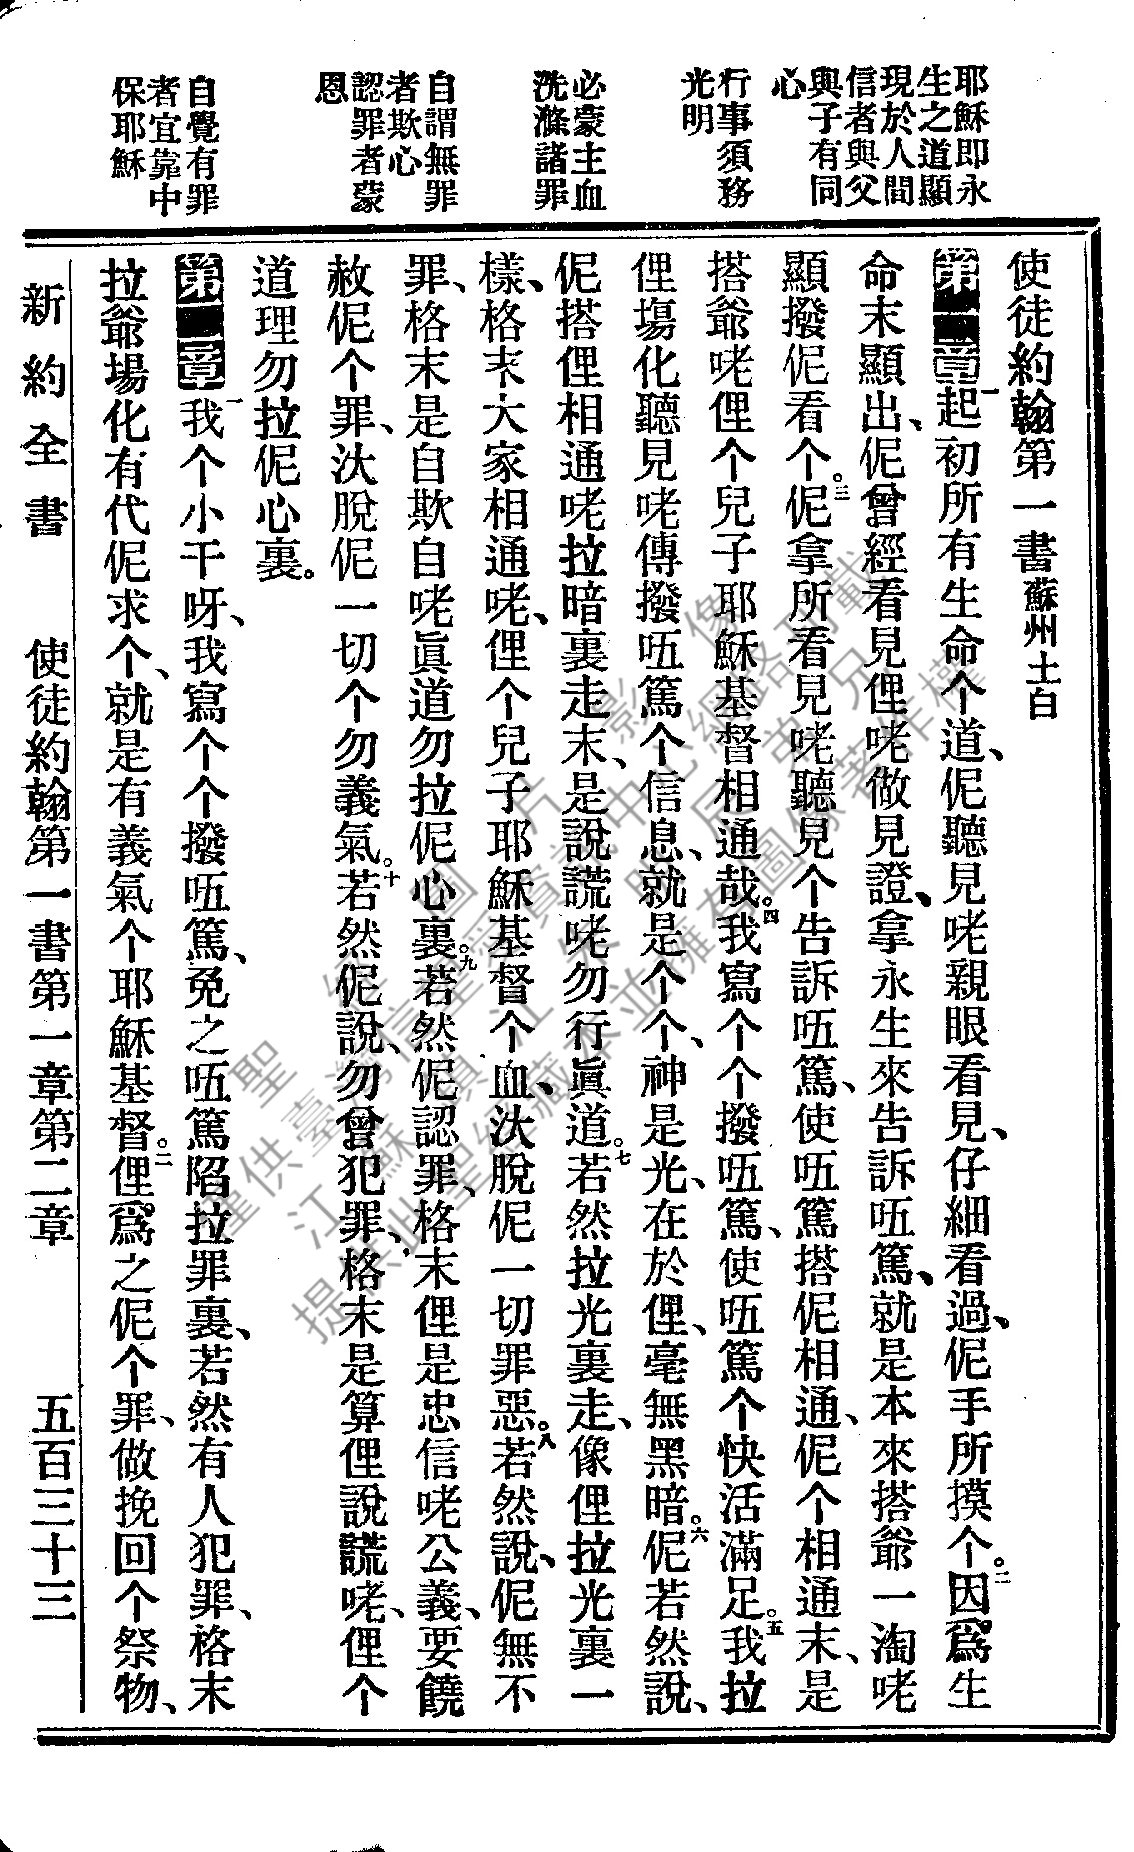 耶穌即永
生之道顯
現於人間
信者與父
與子有同
心
行事須務
光明
必蒙主血
洗滌諸罪
自謂無罪
者欺心
認罪者蒙
恩
自覺有罪
者宜靠中
保耶穌
使徒約翰第一書蘇州土白
第一章一起初所有生命个道、伲聽見咾親眼看見、仔細看過、伲手所摸个。二因爲生
命末顯出、伲曾經看見俚咾做見證、拿永生來告訴㕶篤、就是本來搭爺一淘咾
顯撥伲看个。三伲拿所看見咾聽見个告訴㕶篤、使㕶篤搭伲相通、伲个相通末、是
搭爺咾俚个兒子耶穌基督相通哉。四我寫个个撥㕶篤、使㕶篤个快活滿足。五我拉
俚塲化聽見咾傳撥㕶篤个信息、就是个个、神是光、在於俚、毫無黑暗。六伲若然說、
伲搭俚相通咾拉暗裏走末、是說謊咾勿行眞道。七若然拉光裏走、像俚拉光裏一
樣、格末大家相通咾、俚个兒子耶穌基督个血、汏脫伲一切罪惡。八若然說、伲無不
罪、格末是自欺自咾眞道勿拉伲心裏。九若然伲認罪、格末俚是忠信咾公義、要饒
赦伲个罪、汏脫伲一切个勿義氣。十若然伲說、勿曾犯罪、格末是算俚說謊咾、俚个
道理勿拉伲心裏。
第二章一我个小干呀、我寫个个撥㕶篤、免之㕶篤陷拉罪裏、若然有人犯罪、格末
拉爺塲化有代伲求个、就是有義氣个耶穌基督。二俚爲之伲个罪、做挽回个祭物、
新約全書 使徒約翰第一書第一章第二章 五百三十三
聖經圖片影像
僅供臺灣信望愛資訊中心網路刊載
江蘇鎮江
提供此聖經藏本並擁有圖像著作權